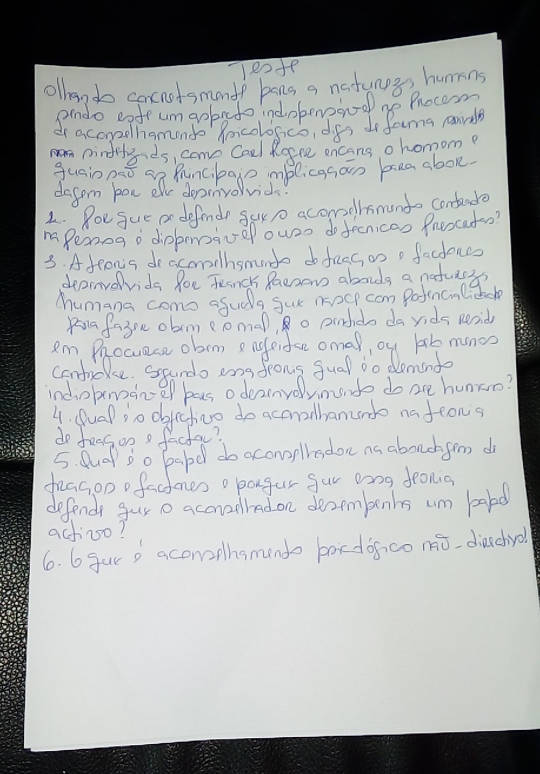 Teste
Olhando concretamente para a natureza humana
sendo este um aspecto indispensável no Processo
de aconselhamento Psicológico, diga de forma
sintetizada, como Carl Roger encara o homem e
quais são as Principais implicações para abor-
dagem por ele desenvolvida.
2. Por que se defende que o aconselhamento centrado
na Pessoa é dispensável o uso de técnicas Prescritas?
3. A teoria de aconselhamento de traços e factores
desenvolvida Por Franck Parsons aborda a natureza
humana como aquela que nasce com Potencialidade
para fazer o bem e o mal, o sentido da vida reside
em Procurar o bem e rejeitar o mal, ou pelo menos
controlar. Segundo essa teoria qual é o elemento
indispensável para o desenvolvimento do ser humano?
4. Qual é o objectivo do aconselhamento na teoria
de traços e factor?
5. Qual é o papel do aconselhador na abordagem de
traços e factores e porque que essa teoria
defende que o aconselhador desempenha um papel
activo?
6. O que é aconselhamento psicológico não-directivo?